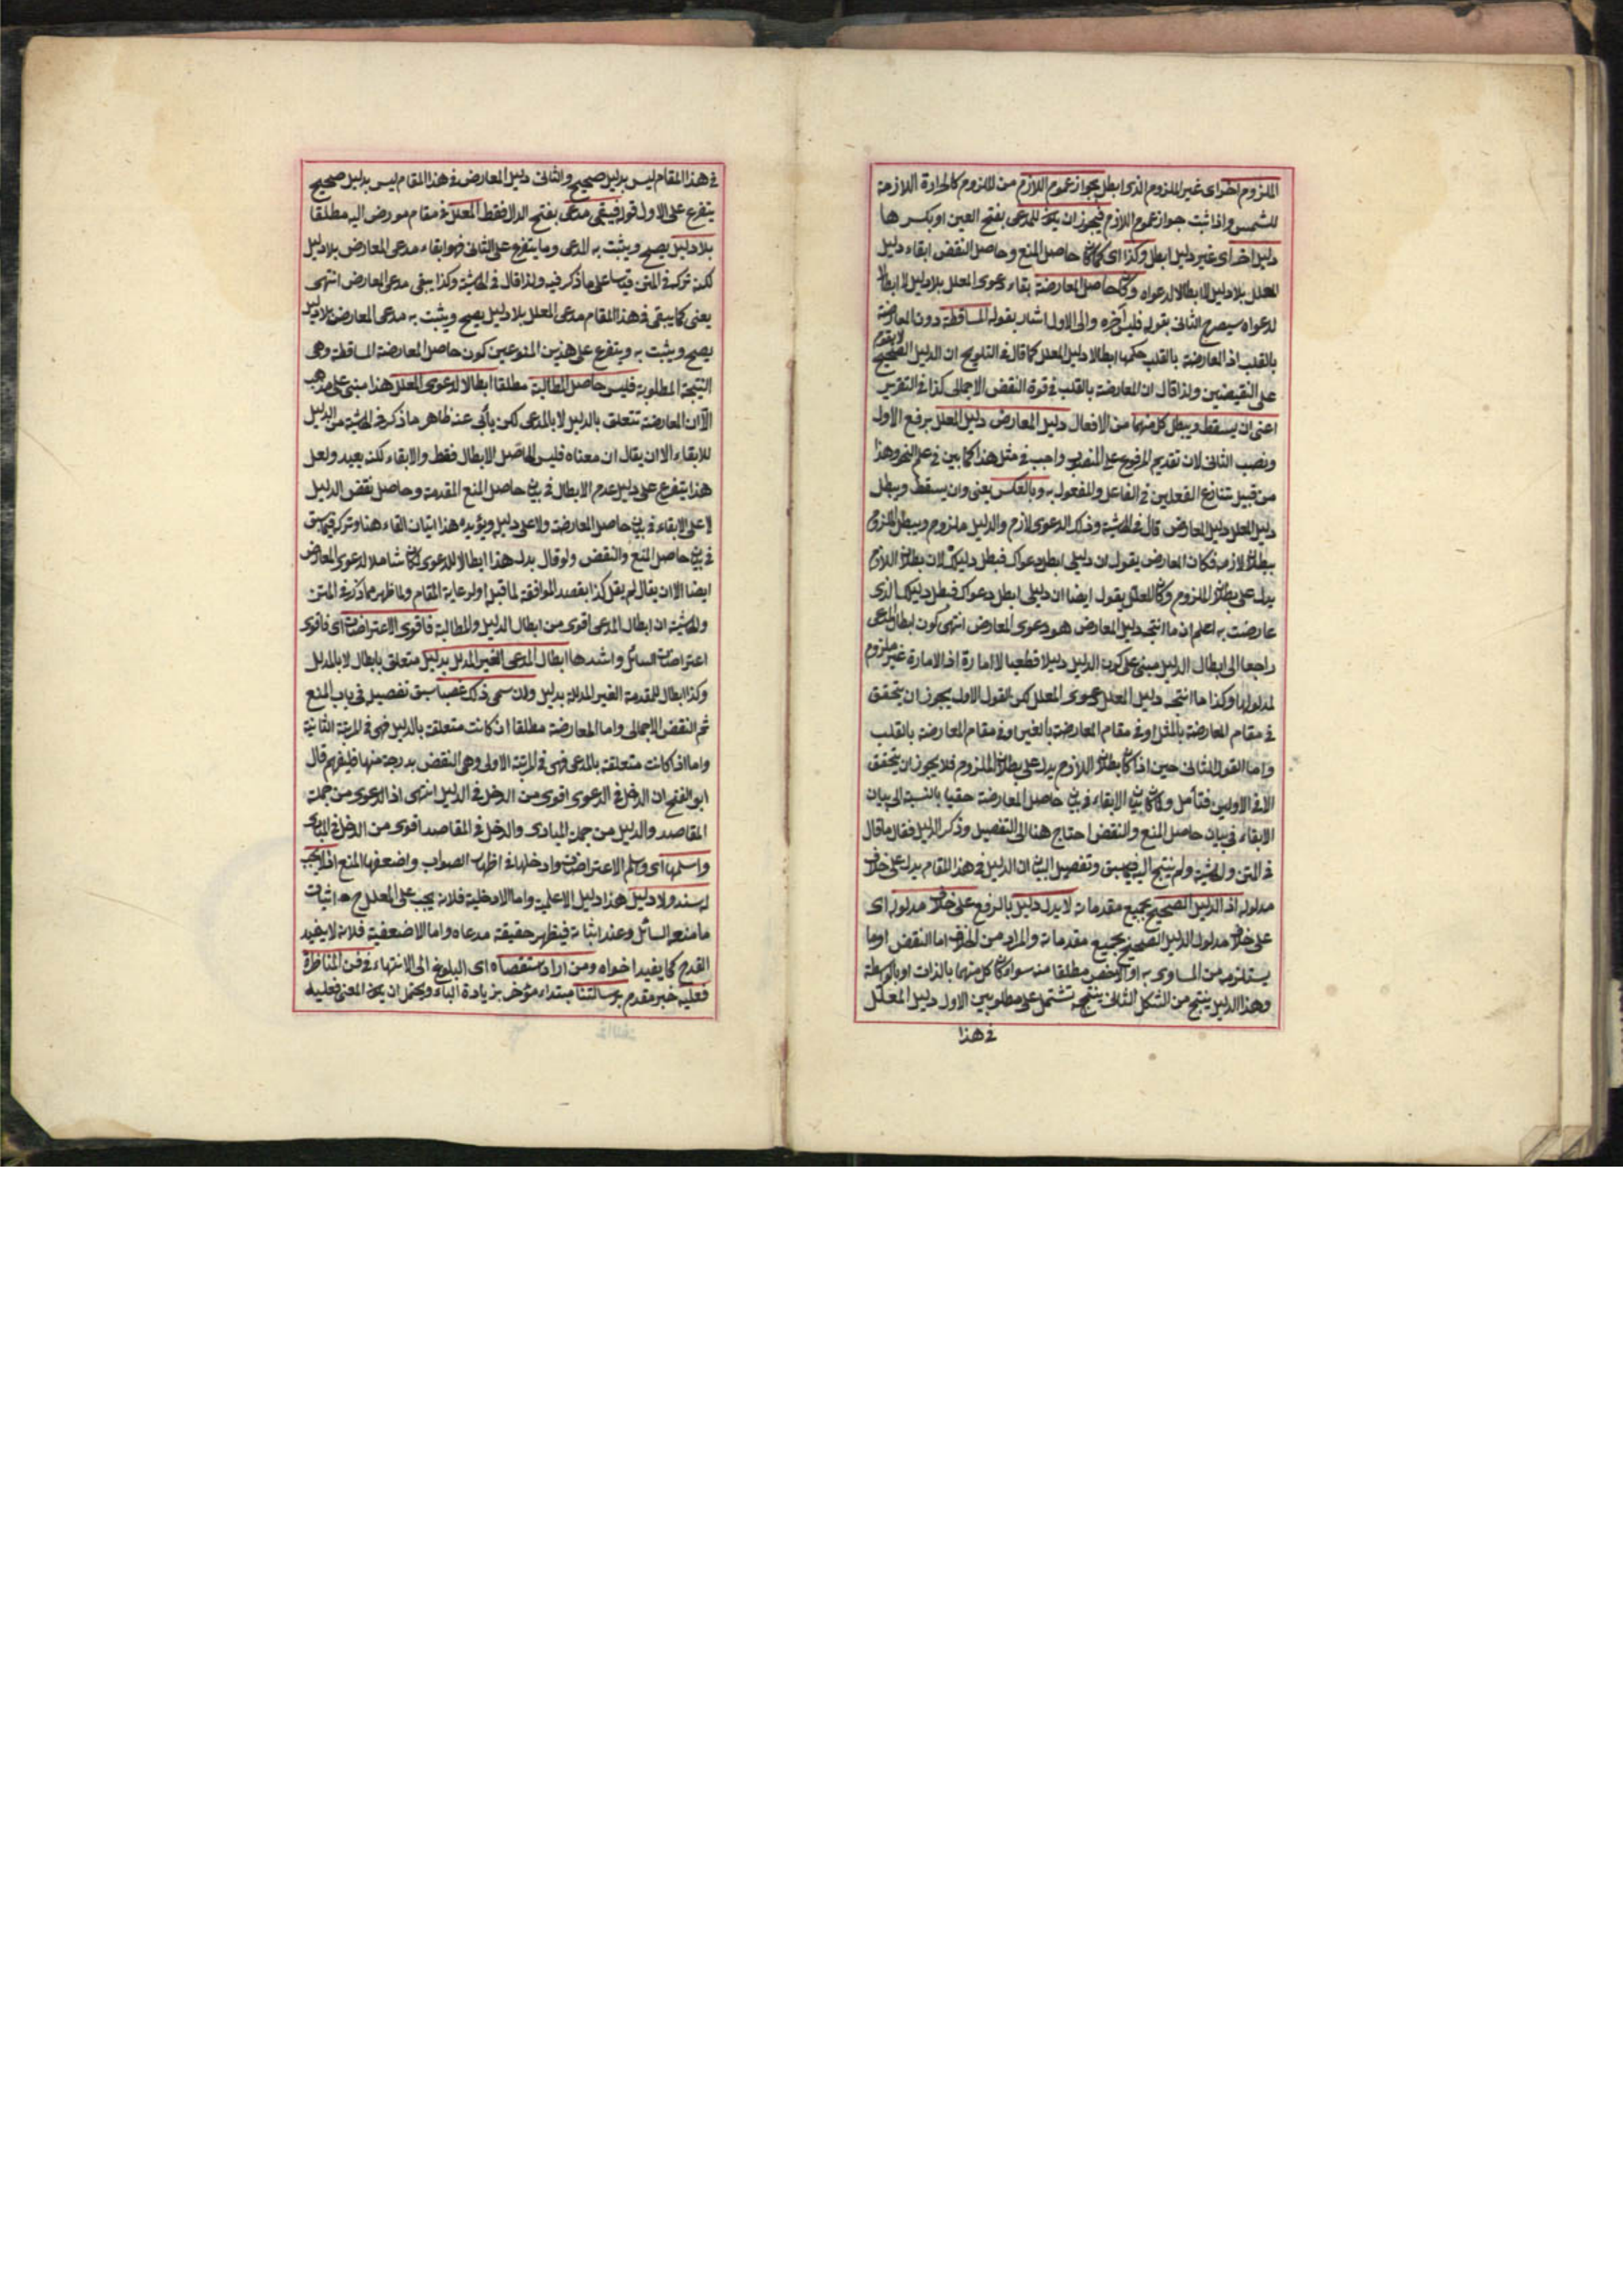 الملزوم اخر اى غير الملزوم الذى ابطل بجواز عموم اللازم من الملزوم كالحرارة اللازمة
للشمس واذا ثبت جواز عموم اللازم فيجوز ان يكون للمدعى بفتح العين او بكسرها
دليل اخر اى غير دليل ابطل وكذا اى كما كان حاصل المنع وحاصل النقض ابقاء دليل
المعلل بلا دليل لا ابطالا لدعواه وكان حاصل المعارضة بقاء دعوى المعلل بلا دليل لا ابطال
لدعواه سيصرح الثانى بقوله فليس اخره والى الاول اشار بقوله المساقطة دون المعارضة
بالقلب اذ المعارضة بالقلب حكمها ابطال دليل المعلل كما قال فى التلويح ان الدليل الصحيح لا يقوم
على النقيضين ولذا قال ان المعارضة بالقلب فى قوة النقض الاجمالى كذا فى التقرير
اعنى ان يسقط ويبطل كل منهما من الافعال دليل المعارض دليل المعلل برفع الاول
ونصب الثانى لان تقديم المرفوع على المنصوب واجب فى مثل هذا كما بين فى علم النحو وهذا
من قبيل تنازع الفعلين فى الفاعل والمفعول به وبالعكس يعنى وان يسقط ويبطل
دليل المعلل دليل المعارض قال فى الحاشية وذلك الدعوى لازم والدليل ملزوم ويبطل الملزوم
ببطلان لازمه فكان المعارض يقول ان دليلى ابطل دعواك فبطل دليلك لان بطلان اللازم
يدل على بطلان الملزوم وكان المعلل يقول ايضا ان دليلى ابطل دعواك فبطل دليلك الذى
عارضت به اعلم ان ما انتجه دليل المعارض هو دعوى المعارض انتهى كون ابطال المدعى
راجعا الى ابطال الدليل مبنى على كون الدليل دليلا قطعيا لا امارة اذ الامارة غير ملزوم
لمدلولها وكذا ما انتجه دليل المعلل دعوى المعلل لكن القول الاول يجوز ان يتحقق
فى مقام المعارضة بالمثل او فى مقام المعارضة بالغير او فى مقام المعارضة بالقلب
واما القول الثانى حين اذا كان بطلان اللازم يدل على بطلان الملزوم فلا يجوز ان يتحقق
الا فى الاوليين فتأمل وكان بيان الابقاء فى بيان حاصل المعارضة خفيا بالنسبة الى بيان
الابقاء فى بيان حاصل المنع والنقض احتاج هنا الى التفصيل وذكر الدليل فقال ما قال
فى المتن والحاشية ولم يحتج اليه فيما سبق وتفصيل البيان ان الدليل فى هذا المقام يدل على خلاف
مدلوله اذ الدليل الصحيح بجميع مقدماته لا يدل دليل بالرفع على خلاف مدلوله اى
على خلاف مدلول الدليل الصحيح بجميع مقدماته والمراد من الخلاف اما النقض او ما
يستلزمه من المساوى به او الاخص مطلقا منه سواء كان كل منهما بالذات او بالواسطة
وهذا الدليل ينتج من الشكل الثانى ينتجه تشتمل على مطلوبين الاول دليل المعلل
فى هذا
فى هذا المقام ليس بدليل صحيح والثانى دليل المعارض فى هذا المقام ليس بدليل صحيح
يتفرع على الاول قوله فيبقى مدعى بفتح الدال فقط المعلل فى مقام مورض اليه مطلقا
بلا دليل يصح ويثبت به المدعى وما يتفرع على الثانى فهو ابقاء مدعى المعارض بلا دليل
لكنه تركه فى المتن قياسا على ما ذكر فيه ولذا قال فى الحاشية وكذا يبقى مدعى المعارض انتهى
يعنى كما يبقى فى هذا المقام مدعى المعلل بلا دليل يصح ويثبت به مدعى المعارض بلا دليل
يصح ويثبت به ويتفرع على هذين المنوعين كون حاصل المعارضة المساقطة وهى
النتيجة المطلوبة فليس حاصل المطالبة مطلقا ابطالا لدعوى المعلل هذا مبنى على مذهب
الآن المعارضة تتعلق بالدليل لا بالمدعى لكن يأبى عنه ظاهر ما ذكر فى الحاشية من الدليل
للابقاء الا ان يقال ان معناه فليس الحاصل الابطال فقط والابقاء لكنه بعيد ولعل
هذا يتفرع على دليل عدم الابطال فى بيان حاصل المنع المقدمة وحاصل نقض الدليل
لا على الابقاء فى بيان حاصل المعارضة ولا على دليله ويؤيده هذا اتيان الفاء هنا وتركه فيما سبق
فى بيان حاصل المنع والنقض ولو قال بدل هذا ابطالا للدعوى لكان شاملا لدعوى المعارض
ايضا الا ان يقال لم يقل كذا بقصد الموافقة لما قبله او لرعاية المقام ولما ظهر مما ذكر فى المتن
والحاشية ان ابطال المدعى اقوى من ابطال الدليل والمطالبة فاقوى الاعتراضات اى فاقوى
اعتراضات السائل واشدها ابطال المدعى الغير المدلل بدليل متعلق بابطال لا بالمدلل
وكذا ابطال للمقدمة الغير المدللة بدليل ولان سمى ذلك غصبا سبق تفصيل فى باب المنع
ثم النقض الاجمالى واما المعارضة مطلقا ان كانت متعلقة بالدليل فهى فى المرتبة الثانية
واما اذ كانت متعلقة بالمدعى فهى فى المرتبة الاولى وهى النقض بدرجة منها فليفهم قال
ابو الفتح ان الدخل فى الدعوى اقوى من الدخل فى الدليل انتهى اذ الدعوى من جملة
المقاصد والدليل من جملة المبادى والدخل فى المقاصد اقوى من الدخل فى المبادى
واسلمها اى واسلم الاعتراضات وادخلها فى اظهار الصواب واضعفها المنع اذ لا يجب
له سند ولا دليل هذا دليل الاعلمية واما الادخلية فلانه يجب على المعلل ح اثبات
ما منعه السائل وعند اثباته فيظهر حقيقة مدعاه واما الاضعفية فلانه لا يفيد
القدح كما يفيد اخواه ومن اراد استقصاه اى البلوغ الى الانتهاء فى فن المناظرة
فعليه خبر مقدم برسالتنا مبتداء مؤخر بزيادة الباء ويحتمل ان يكون المعنى فعليه